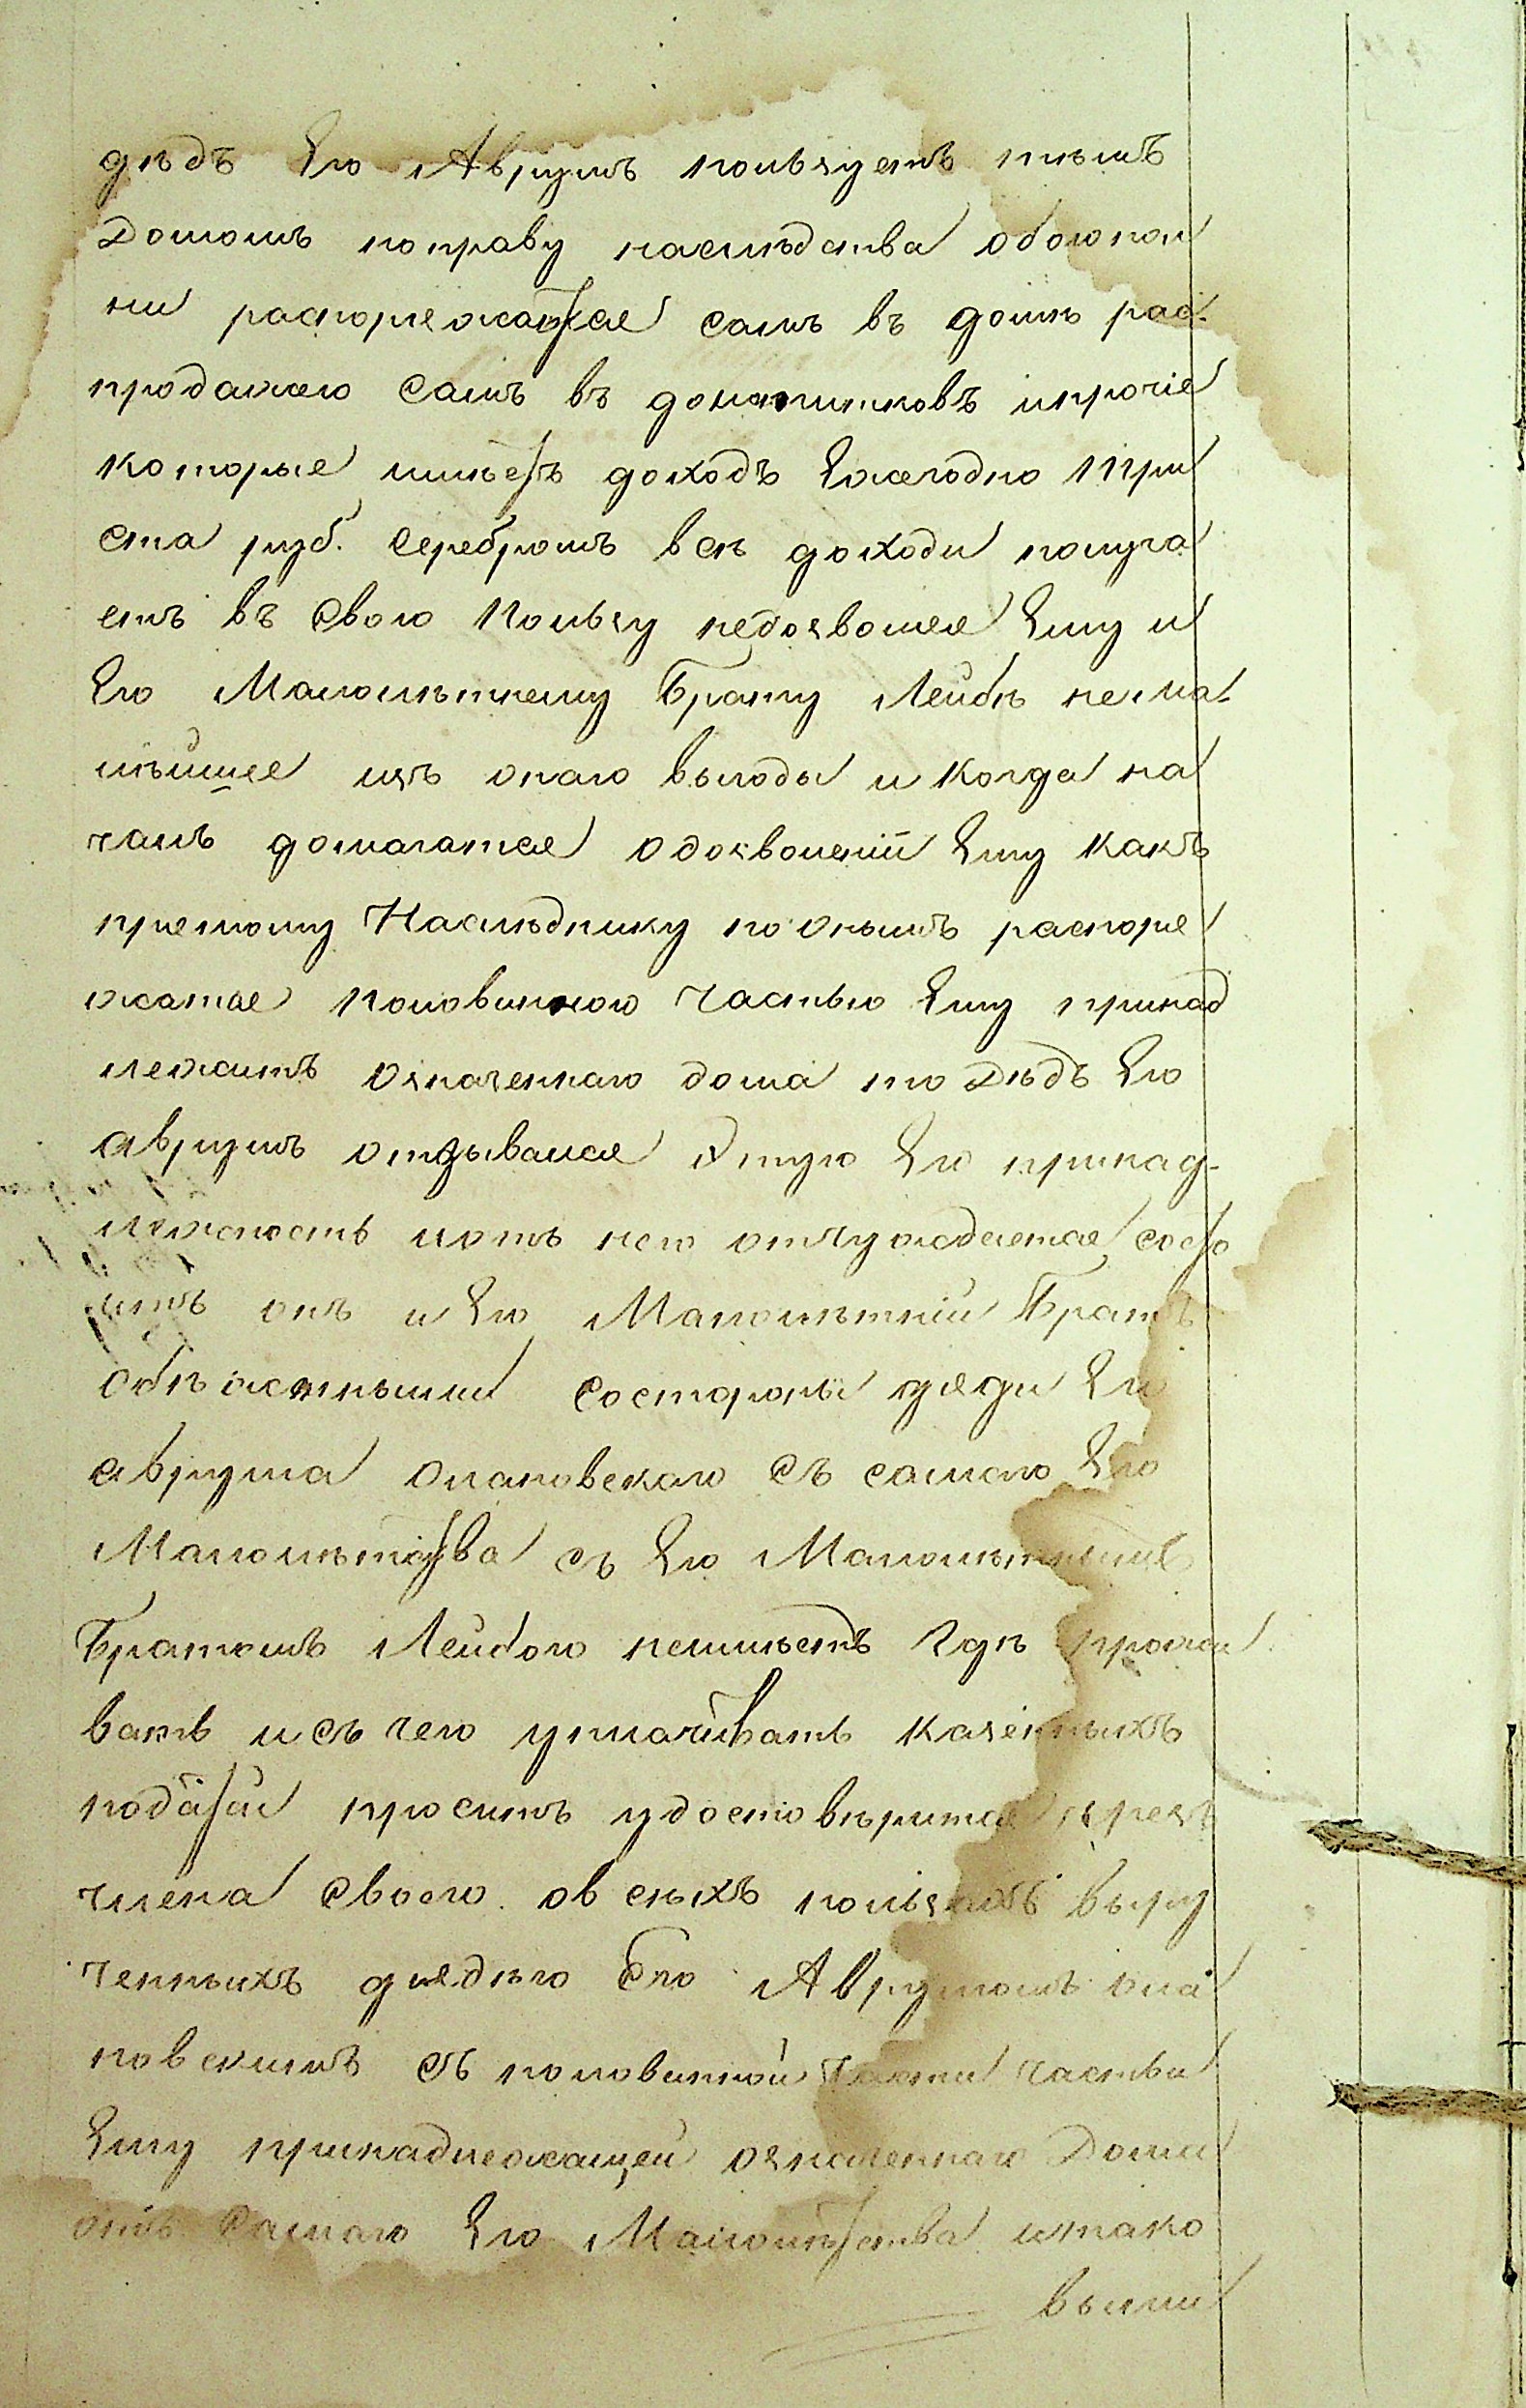 дѣдъ Его Аврумъ пользуетъ тѣмъ
Домомъ поправу наслѣдства
ни распоряжатся самъ въ домѣ рас
продажею самъ въ прочіе
которые имѣетъ доходъ Ежегодно три
ста руб. серебромъ всѣ доходи получа
етъ въ свою Пользу недозволяя Ему и
Его Малолѣтнему Брату Лейбѣ не ма
лѣйшее изъ онаго выгоды и когда на
чалъ домагатся одозволеніи Ему какъ
прямому Наслѣднику поонымъ распоря
жатся половинною частью Ему принад
лежитъ означеннаго дома то Дѣдъ Его
Аврумъ отзывался Этую Его принад-
лежность иотъ него отчуждается состо
итъ онъ и Его Малолѣтній Братъ
состороны дяди Его
Аврума съ самого Его
Малолѣтства съ Его Малолѣтнымъ
Братомъ Лейбою неимѣетъ гдѣ прожи
вать и съ чего уплачивать казенныхъ
податей проситъ удостовѣрится чрезъ
члена своего овсѣхъ пользахъ выру
ченныхъ дядѣю Его Аврумомъ
съ половинной части части
Ему принадлежащей означеннаго Дома
отъ самаго Его Малолѣтства итако
выми